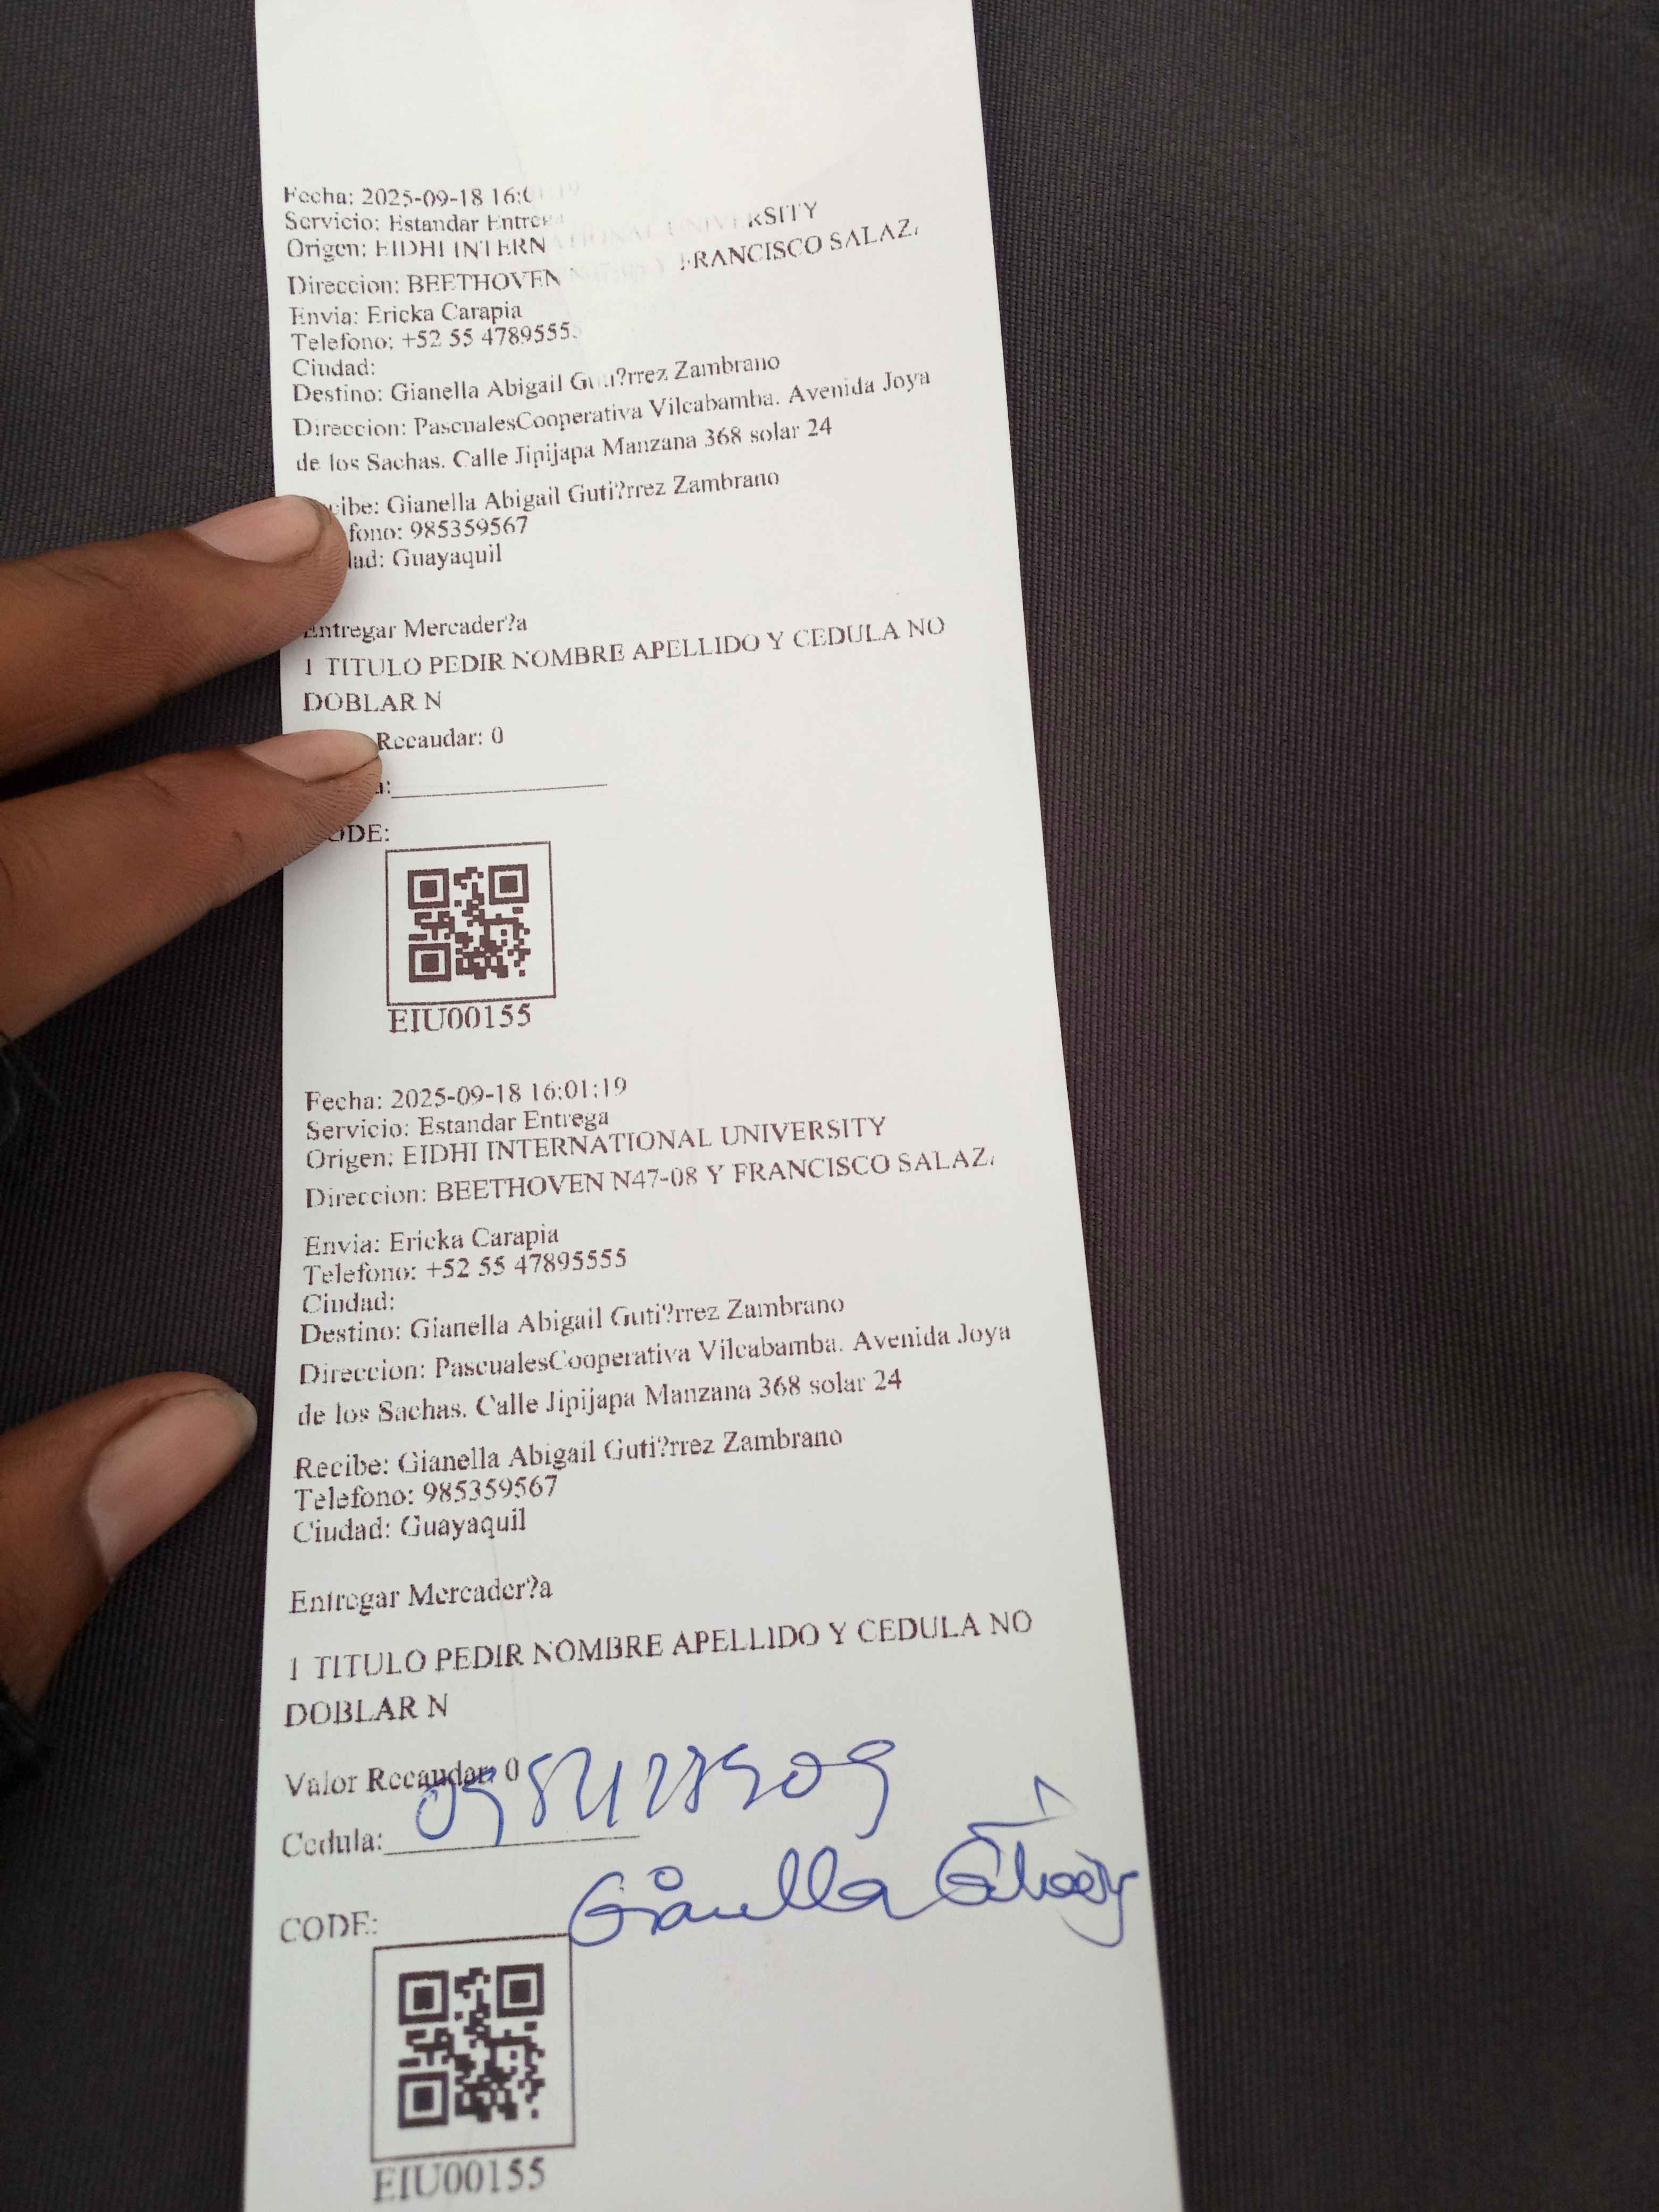 Fecha: 2025-09-18 16:01:19
Servicio: Estandar Entrega
Origen: EIDHI INTERNATIONAL UNIVERSITY
Direccion: BEETHOVEN N47-08 Y FRANCISCO SALAZ
Envia: Ericka Carapia
Telefono: +52 55 47895555
Ciudad:
Destino: Gianella Abigail Guti?rrez Zambrano
Direccion: PascualesCooperativa Vilcabamba. Avenida Joya
de los Sachas. Calle Jipijapa Manzana 368 solar 24
cibe: Gianella Abigail Guti?rrez Zambrano
fono: 985359567
dad: Guayaquil
Entregar Mercader?a
1 TITULO PEDIR NOMBRE APELLIDO Y CEDULA NO
DOBLAR N
Recaudar: 0
a:
ODE:
EIU00155
Fecha: 2025-09-18 16:01:19
Servicio: Estandar Entrega
Origen: EIDHI INTERNATIONAL UNIVERSITY
Direccion: BEETHOVEN N47-08 Y FRANCISCO SALAZ
Envia: Ericka Carapia
Telefono: +52 55 47895555
Ciudad:
Destino: Gianella Abigail Guti?rrez Zambrano
Direccion: PascualesCooperativa Vilcabamba. Avenida Joya
de los Sachas. Calle Jipijapa Manzana 368 solar 24
Recibe: Gianella Abigail Guti?rrez Zambrano
Telefono: 985359567
Ciudad: Guayaquil
Entregar Mercader?a
1 TITULO PEDIR NOMBRE APELLIDO Y CEDULA NO
DOBLAR N
Valor Recaudar: 0
Cedula:
Gianella
CODE:
EIU00155